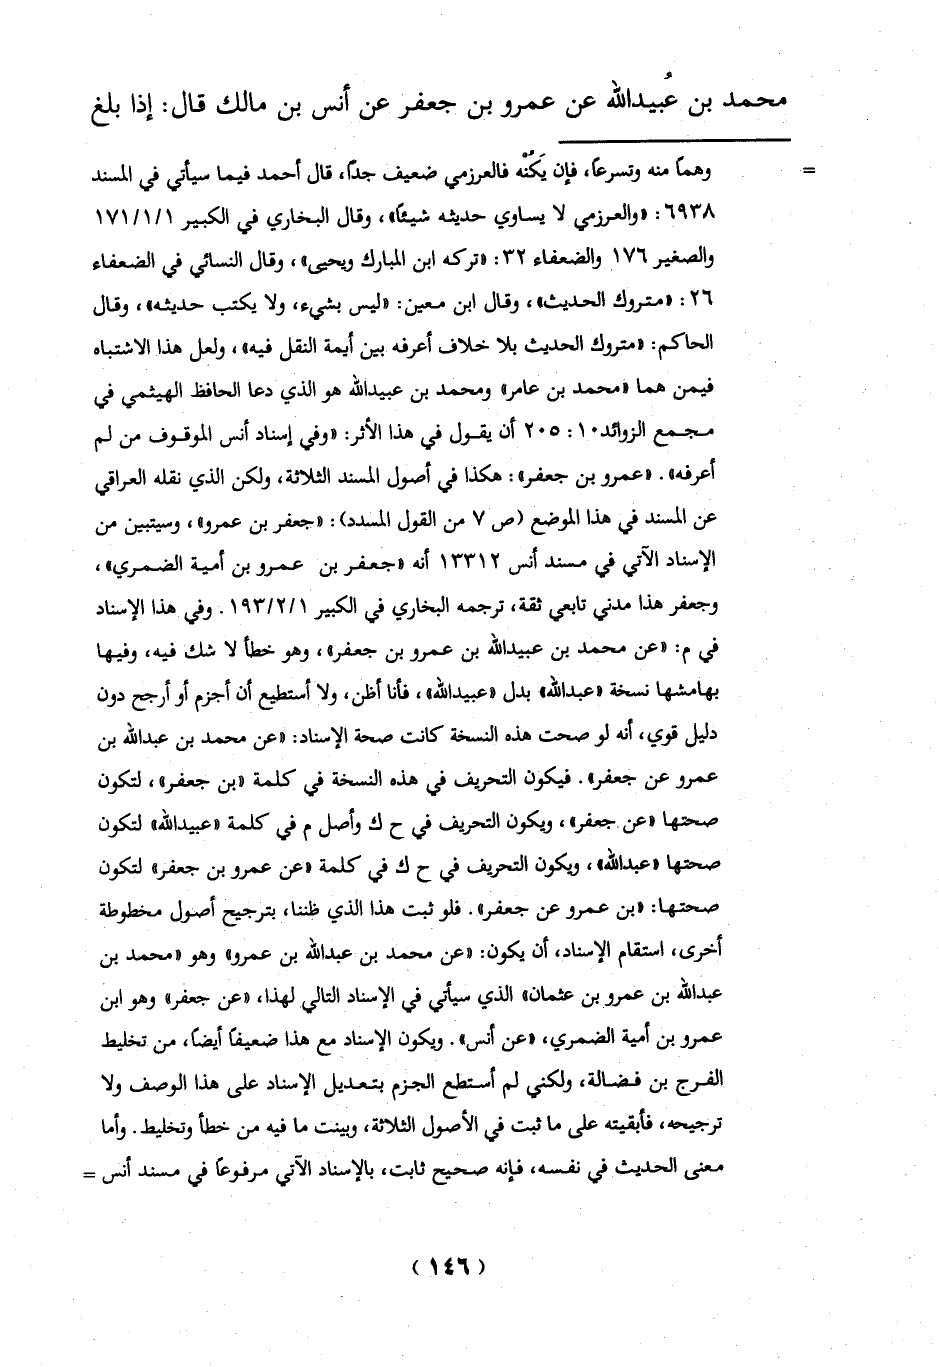 محمد بن عُبيدالله عن عمرو بن جعفر عن أنس بن مالك قال: إذا بلغ
= وهماً منه وتسرعاً، فإن يَكُنْه فالعرزمي ضعيف جداً، قال أحمد فيما سيأتي في المسند
٦٩٣٨: «والعرزمي لا يساوي حديثه شيئاً»، وقال البخاري في الكبير ١/١/١٧١
والصغير ١٧٦ والضعفاء ٣٢: «تركه ابن المبارك ويحيى»، وقال النسائي في الضعفاء
٢٦: «متروك الحديث»، وقال ابن معين: «ليس بشيء، ولا يكتب حديثه»، وقال
الحاكم: «متروك الحديث بلا خلاف أعرفه بين أيمة النقل فيه»، ولعل هذا الاشتباه
فيمن هما «محمد بن عامر» ومحمد بن عبيدالله هو الذي دعا الحافظ الهيثمي في
مجمع الزوائد ١٠: ٢٠٥ أن يقول في هذا الأثر: «وفي إسناد أنس الموقوف من لم
أعرفه». «عمرو بن جعفر»: هكذا في أصول المسند الثلاثة، ولكن الذي نقله العراقي
عن المسند في هذا الموضع (ص ٧ من القول المسدد): «جعفر بن عمرو»، وسيتبين من
الإسناد الآتي في مسند أنس ١٣٣١٢ أنه «جعفر بن عمرو بن أمية الضمري»،
وجعفر هذا مدني تابعي ثقة، ترجمه البخاري في الكبير ١/٢/١٩٣. وفي هذا الإسناد
في م: «عن محمد بن عبيدالله بن عمرو بن جعفر»، وهو خطأ لا شك فيه، وفيها
بهامشها نسخة «عبدالله» بدل «عبيدالله»، فأنا أظن، ولا أستطيع أن أجزم أو أرجح دون
دليل قوي، أنه لو صحت هذه النسخة كانت صحة الإسناد: «عن محمد بن عبدالله بن
عمرو عن جعفر». فيكون التحريف في هذه النسخة في كلمة «بن جعفر»، لتكون
صحتها «عن جعفر»، ويكون التحريف في ح ك وأصل م في كلمة «عبيدالله» لتكون
صحتها «عبدالله»، ويكون التحريف في ح ك في كلمة «عن عمرو بن جعفر» لتكون
صحتها: «بن عمرو عن جعفر». فلو ثبت هذا الذي ظننا، بترجيح أصول مخطوطة
أخرى، استقام الإسناد، أن يكون: «عن محمد بن عبدالله بن عمرو» وهو «محمد بن
عبدالله بن عمرو بن عثمان» الذي سيأتي في الإسناد التالي لهذا، «عن جعفر» وهو ابن
عمرو بن أمية الضمري، «عن أنس». ويكون الإسناد مع هذا ضعيفاً أيضاً، من تخليط
الفرج بن فضالة، ولكني لم أستطع الجزم بتعديل الإسناد على هذا الوصف ولا
ترجيحه، فأبقيته على ما ثبت في الأصول الثلاثة، وبينت ما فيه من خطأ وتخليط. وأما
معنى الحديث في نفسه، فإنه صحيح ثابت، بالإسناد الآتي مرفوعاً في مسند أنس =
(١٤٦)